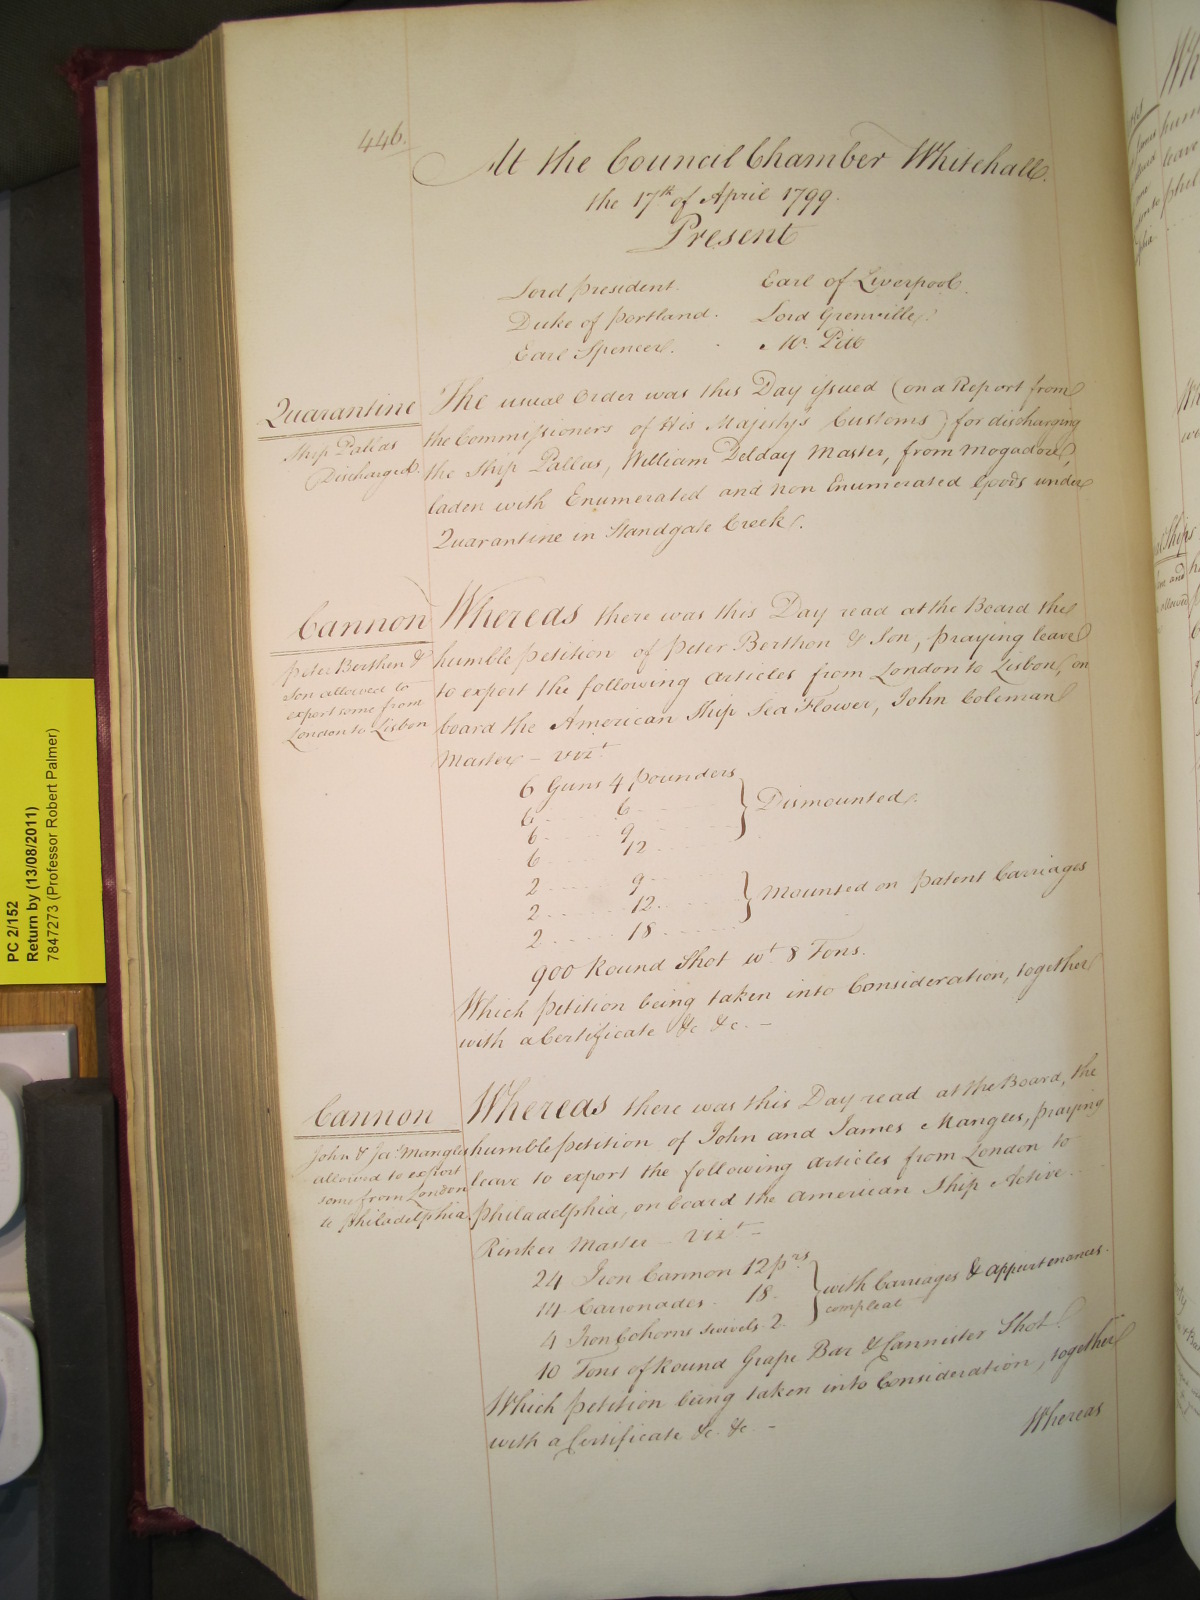 446.
At the Council Chamber Whitehall.
the 17th of April 1799.
Present
Lord President. Earl of Liverpool.
Duke of Portland. Lord Grenville.
Earl Spencer. Mr. Pitt
Quarantine
Ship Pallas
Discharged.
The usual Order was this Day issued (on a Report from
the Commissioners of His Majesty's Customs) for discharging
the Ship Pallas, William Delday Master, from Mogadore,
laden with Enumerated and non Enumerated Goods under
Quarantine in Standgate Creek.
Cannon
Peter Berthon &
Son allowed to
export some from
London to Lisbon
Whereas there was this Day read at the Board the
humble Petition of Peter Berthon & Son, praying leave
to export the following Articles from London to Lisbon, on
board the American Ship Sea Flower, John Coleman
Master - vizt
6 Guns 4 Pounders
6 6
6 9
6 12
Dismounted.
2 9
2 12
2 18
Mounted on Patent Carriages
900 Round Shot wt 8 Tons.
Which Petition being taken into Consideration, together
with a Certificate &c &c. -
Cannon
John & Jas. Mangles
allowed to export
some from London
to Philadelphia.
Whereas there was this Day read at the Board, the
humble Petition of John and James Mangles, praying
leave to export the following Articles from London to
Philadelphia, on board the American Ship Active.
Rinker Master - Vizt -
24 Iron Cannon 12 prs
14 Carronades. 18.
4 Iron Cohorns Swivels. 2.
with Carriages & appurtenances.
compleat
10 Tons of Round Grape Bar & Cannister Shot
Which Petition being taken into Consideration, together
with a Certificate &c. &c. -
Whereas
PC 2/152
Return by (13/08/2011)
7847273 (Professor Robert Palmer)